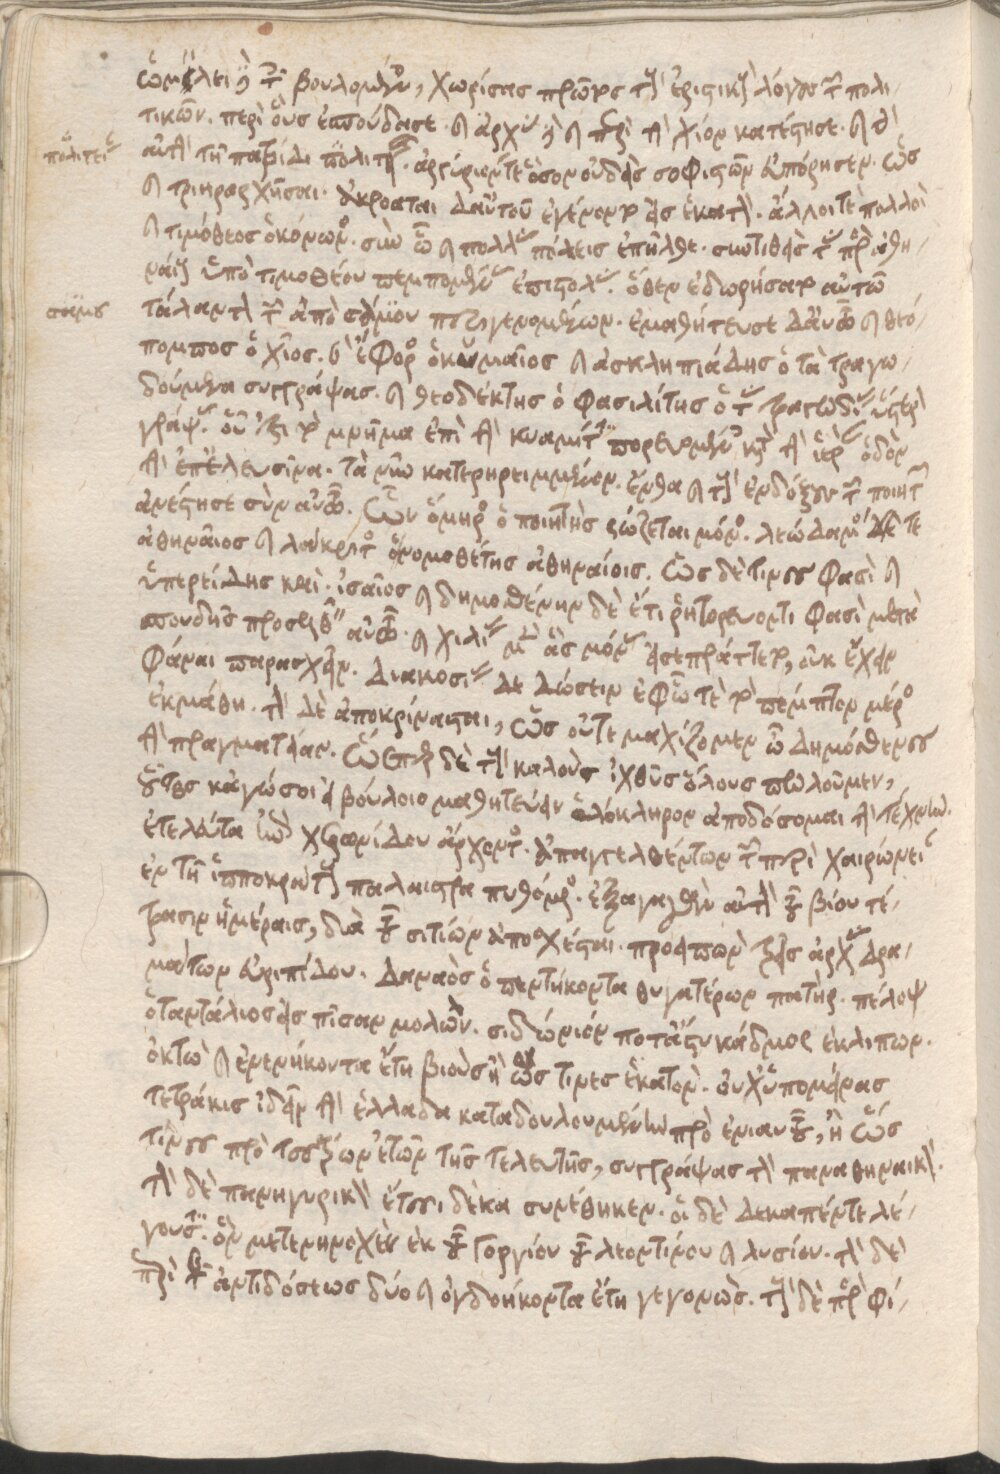 ὡμίλει δὲ τοῖς βουλομένοις, χωρίσας πρῶτος τοὺς ἐριστικοὺς λόγους τῶν πολι-
τικῶν. περὶ οὓς ἐσπούδασε. καὶ ἀρχὰς δὲ καὶ περὶ τὴν χίον κατέστησε. καὶ τὴν
πολιτεί
αὐτὴν τῇ πατρίδι πολιτείαν. ἀργύριόν τε ὅσον οὐδεὶς σοφιστῶν εὐπόρησεν. ὡς
καὶ τριηραρχῆσαι. ἀκροαταὶ δαὐτοῦ ἐγένοντο εἰς ἑκατὸν. ἄλλοι τὲ πολλοὶ
καὶ τιμόθεος ὁ κόνωνος. σὺν ὧ καὶ πολλὰς πόλεις ἐπῆλθε. συντιθεὶς τὰς πρὸς ἀθη-
ναίους ὑπὸ τιμοθέου πεμπομένας ἐπιστολάς. ὅθεν ἐδωρήσατο αὐτῶ
σάμου
τάλαντον τῶν ἀπὸ σάμου περιγενομένων. ἐμαθήτευσε δαὐτῶ καὶ θεό-
πομπος ὁ χῖος. καὶ ἔφορος ὁ κυμαῖος καὶ ἀσκληπιάδης ὁ τὰ τραγω-
δούμενα συγγράψας. καὶ θεοδέκτης ὁ φασιλίτης ὁ τὰς τραγωδίας ὕστερον
γράψας. οὗ ἐστι τὸ μνῆμα ἐπὶ τὴν κυαμίτην πορευομένοις κατὰ τὴν ἱερὰν ὁδὸν
τὴν ἐπ' ἐλευσῖνα. τὰ νῦν κατερηρειμμένον. ἔνθα καὶ τοὺς ἐνδόξους τῶν ποιητῶν
ἀνέστησε σὺν αὐτῶ. ὧν ὅμηρος ὁ ποιητὴς σώζεται μόνος. λεώδαμος δέ τε
ἀθηναῖος καὶ λάκριτος ὁ νομοθέτης ἀθηναίοις. ὡς δὲ τινες φασὶ καὶ
ὑπερείδης καὶ ἰσαῖος καὶ δημοσθένην δὲ ἔτι ῥητορεύοντι φασὶ μετὰ
σπουδῆς προσελθεῖν αὐτῶ. καὶ χιλίας μὲν ἃς μόνας εἰσεπράττετο, οὐκ ἔχειν
φάναι παρασχεῖν. διακοσίας δὲ δώσειν ἐφῶ τὲ τὸ πέμπτον μέρος
ἐκμάθη. τὸν δὲ ἀποκρίνασθαι, ὡς οὔτε μαχίζομεν ὦ δημόσθενες
τὴν πραγματείαν. ὥσπερ δὲ τοὺς καλοὺς ἰχθῦς ὅλους πωλοῦμεν,
οὕτως κἀγώ σοι εἰ βούλοιο μαθητεύειν ὁλόκληρον ἀποδόσομαι τὴν τέχνην.
ἐτελεύτα ἐπὶ χαιρωνίδου ἄρχοντος. ἀπαγγελθέντων τῶν περὶ χαιρώνειαν
ἐν τῇ ἱπποκράτους παλαίστρα πυθόμενος. ἐξαγαγὼν αὑτὸν τοῦ βίου τέ-
τρασιν ἡμέραις, διὰ τοῦ σιτίων ἀποσχέσθαι. προειπὼν τρεῖς ἀρχὰς δρα-
μάτων εὐριπίδου. δαναὸς ὁ πεντήκοντα θυγατέρων πατήρ. πέλοψ
ὁ ταντάλιος εἰς πῖσαν μολών. σιδώνιόν ποτ' ἄστυ κάδμος ἐκλιπών.
ὀκτὼ καὶ ἐνενήκοντα ἔτη βιοὺς ἢ ὡς τινες ἑκατόν. οὐχ ὑπομείνας
τετράκις ἰδεῖν τὴν ἑλλάδα καταδουλουμένην πρὸ ἐνιαυτοῦ, ἢ ὥς
τινες πρὸ τεσσάρων ἐτῶν τῆς τελευτῆς, συγγράψας τὸν παναθηναικὸν.
τὸν δὲ πανηγυρικὸν ἔτεσι δέκα συνέθηκεν. οἱ δὲ δεκαπέντε λέ-
γουσιν. ὃν μετενηνοχέναι ἐκ τοῦ γοργίου τοῦ λεοντίνου καὶ λυσίου. τὸν δὲ
περὶ τῆς ἀντιδόσεως δύο καὶ ὀγδοήκοντα ἔτη γεγονώς. τοὺς δὲ πρὸς φί-